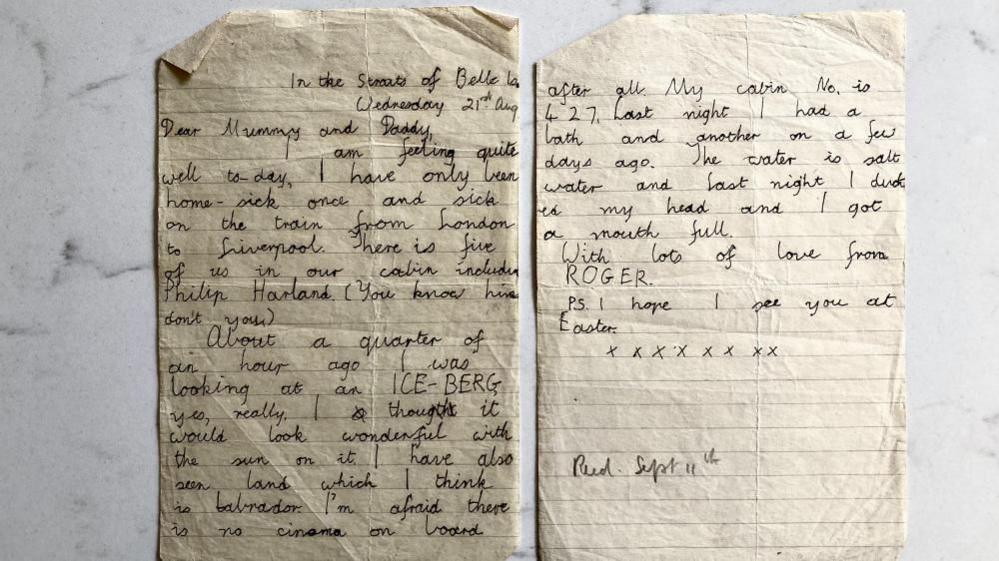 In the Straits of Belle Is
Wednesday 21st Aug
Dear Mummy and Daddy,
I am feeling quite
well to-day, I have only been
home-sick once and sick
on the train from London
to Liverpool. There is five
of us in our cabin includin
Philip Harland. (You know him
don't you.)
About a quarter of
an hour ago I was
looking at an ICE-BERG,
yes, really, I thought it
would look wonderful with
the sun on it. I have also
seen land which I think
is Labrador. I'm afraid there
is no cinema on board
after all. My cabin No. is
427, Last night I had a
bath and another on a few
days ago. The water is salt
water and last night I duck
ed my head and I got
a mouth full.
With lots of love from
ROGER.
PS. I hope I see you at
Easter.
x x x x x x x x
Recd. Sept 11th